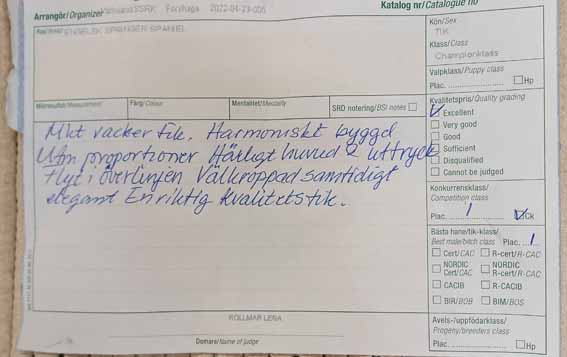 Arrangör/Organizer SSRK Forshaga 2022-04-23-006
Katalog nr/Catalogue no
ENGELSK SPRINGER SPANIEL
Kön/Sex
TIK
Klass/Class
Championklass
Valpklass/Puppy class
Plac. Hp
Färg/Colour Mentalitet/Mentality SRD notering/BSI notes
Mkt vacker tik. Harmoniskt byggd
Utm proportioner Härligt huvud & uttryck
Flyt i överlinjen Välkroppad samtidigt
elegant En riktig kvalitetstik.
Kvalitetspris/Quality grading
Excellent
Very good
Good
Sufficient
Disqualified
Cannot be judged
Konkurrensklass/
Competition class
Plac. 1 Ck
Bästa hane/tik-klass/
Best male/bitch class Plac. 1
Cert/CAC R-cert/R-CAC
NORDIC Cert/CAC NORDIC R-cert/R-CAC
CACIB R-CACIB
BIR/BOB BIM/BOS
Avels-/uppfödarklass/
Progeny/breeders class
Plac. Hp
KOLLMAR LENA
Domare/Name of judge